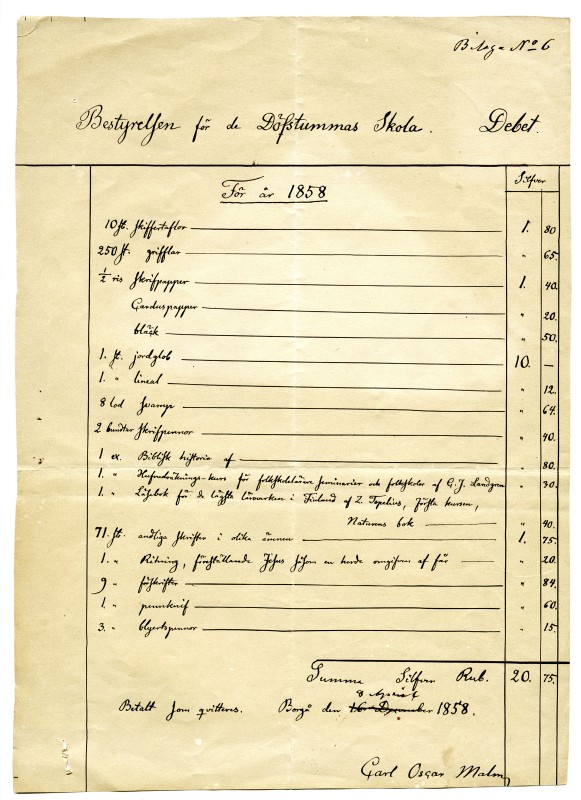 Bilaga No 6
Bestyrelsen för de Döfstummas Skola. Debet.
Silfver
För år 1858
10 st. skiffertaflor 1. 80
250 st. grifflar " 65.
½ ris skrifpapper 1. 40.
Carduspapper " 20.
bläck " 50.
1. st. jordglob 10. —
1. " lineal " 12.
8 lod svamp " 64.
2 bundter skrifpennor " 40.
1 ex. Biblisk historia af " 80.
1. " Hufvudräknings-kurs för folkskolelärare seminarier och folkskolor af G. J. Landgren " 30.
1. " Läsebok för de lägsta lärowerken i Finland af Z. Topelius, första kursen,
Naturens bok " 40.
71. st. andliga skrifter i olika ämnen 1. 75.
1. " Ritning, föreställande Jesus såsom en herde omgifven af får " 20.
9 " " 84.
1. " pennknif " 60.
3. " blyertspennor " 15.
Summa Silfver Rub. 20. 75.
8
Betalt som qvitteras. Borgå den 16 December 1858.
Carl Oscar Malm